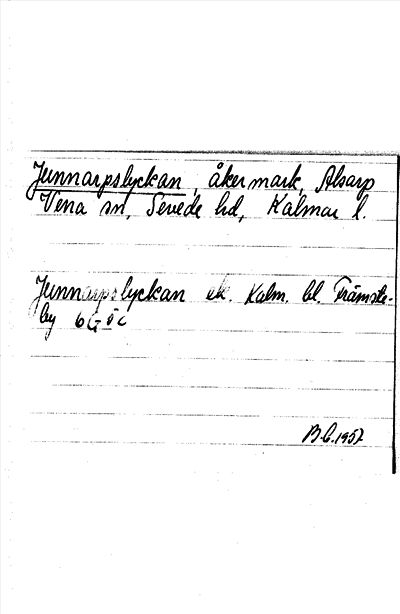 Junnarpslyckan, åkermark, Alsarp
Vena sn, Sevede hd, Kalmar l.
Junnarpslyckan ek. Kalm. bl. Främste-
by 6G öc
B.C. 1957